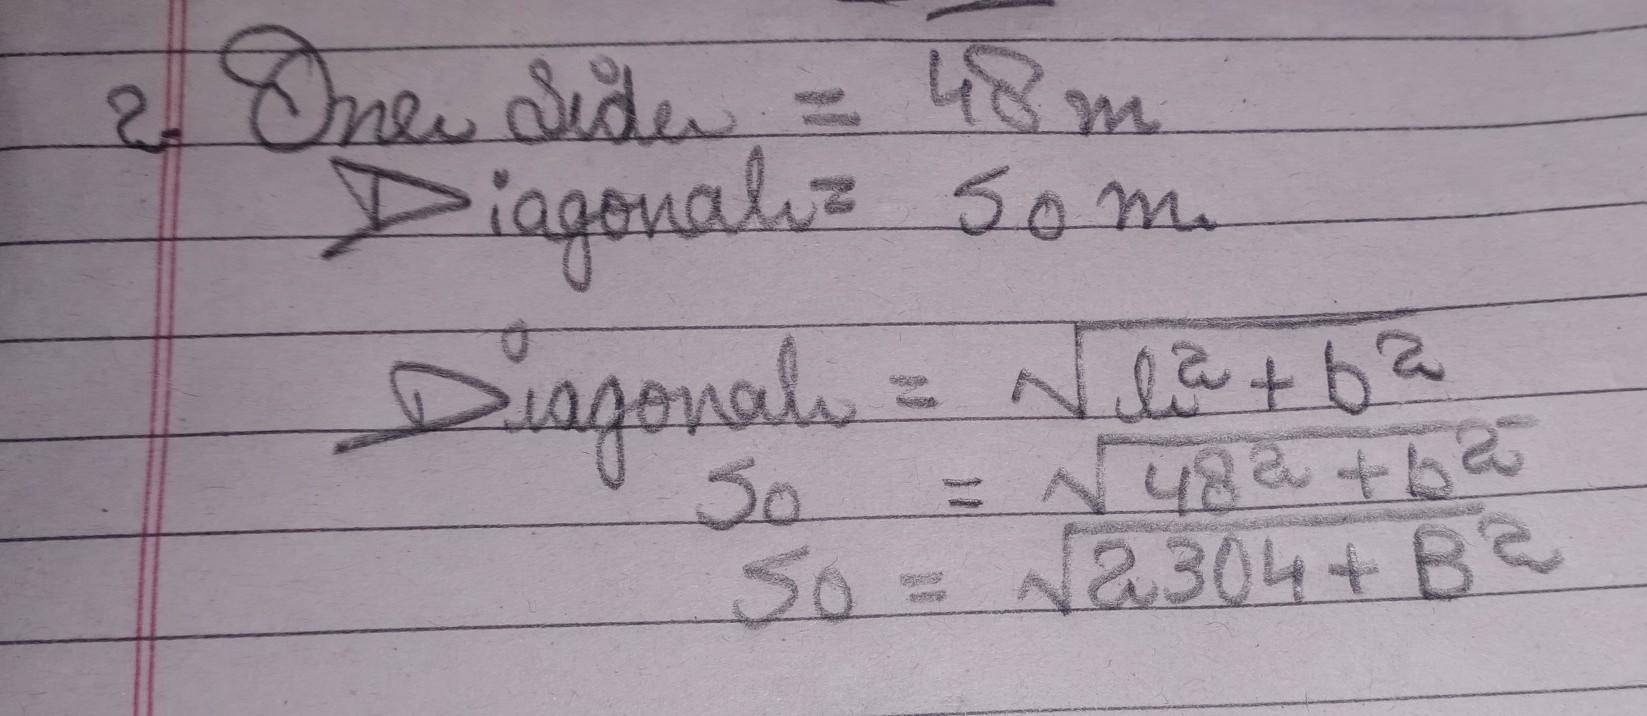 2. One side = 48 m
Diagonal = 50 m
Diagonal = √l² + b²
50 = √48² + b²
50 = √2304 + B²